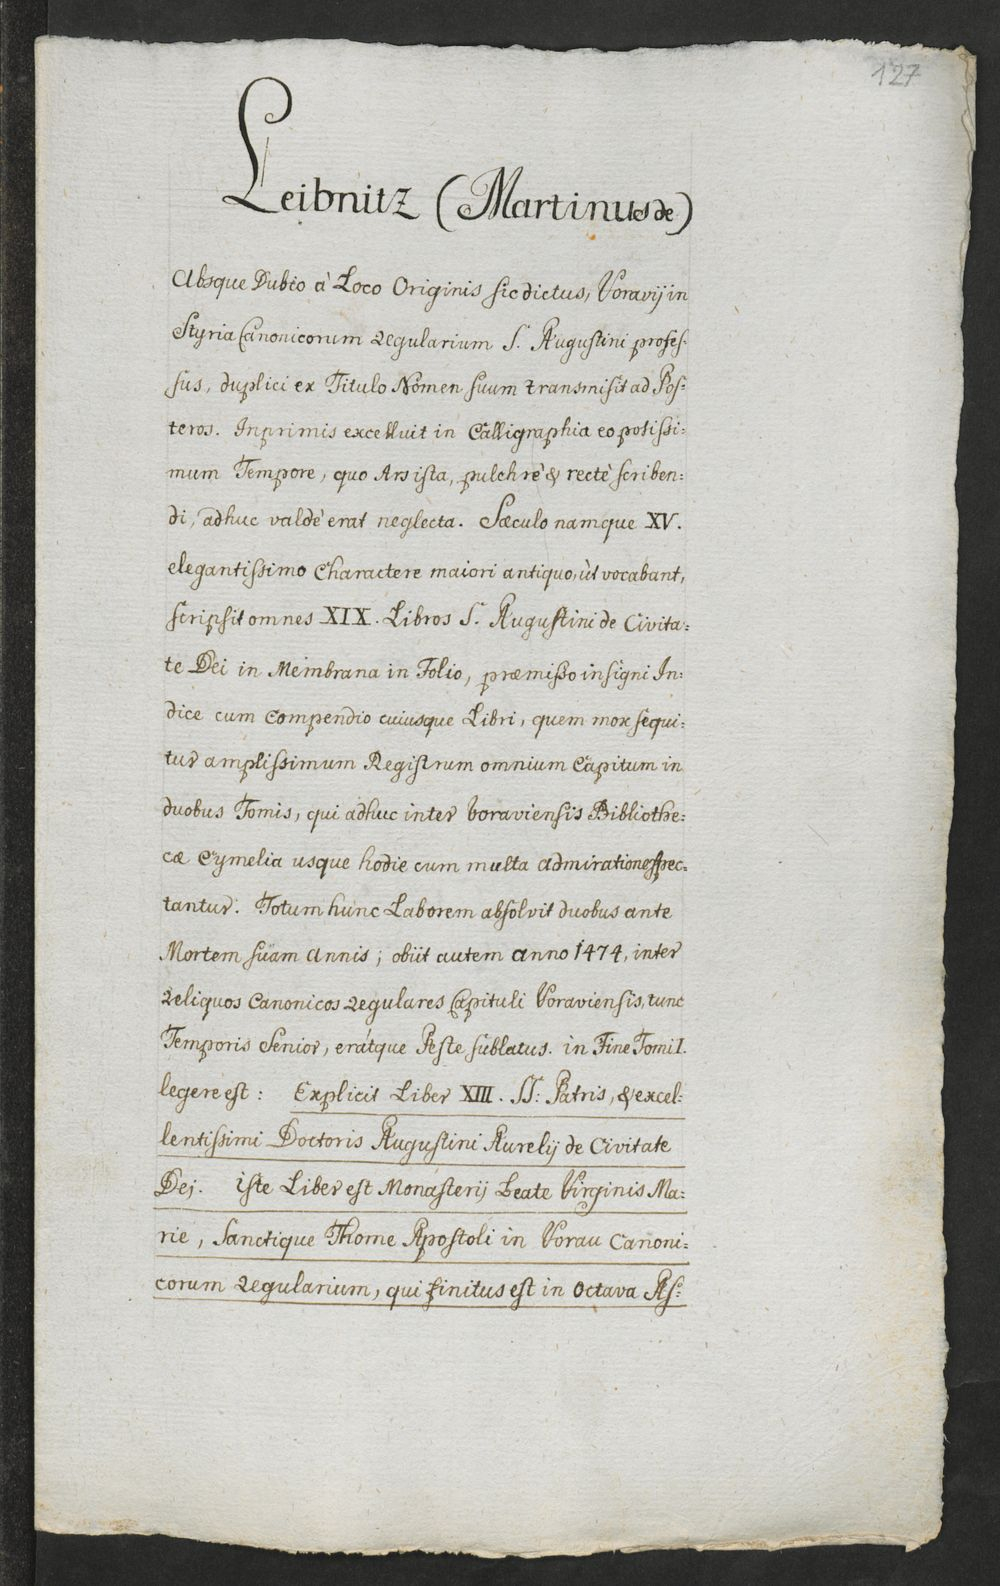 127
Leibnitz (Martinus de)
Absque Dubio à Loco Originis sic dictus, Voravij in
Styria Canonicorum Regularium S. Augustini profes-
sus, duplici ex Titulo Nomen suum transmisit ad Pos:
teros. Inprimis excelluit in Calligraphia eo potissi:
mum Tempore, quo Ars ista, pulchrè & rectè scriben:
di, adhuc valdè erat neglecta. Sæculo namque XV.
elegantissimo Charactere maiori antiquo, ùt vocabant,
scripsit omnes XIX. Libros S. Augustini de Civita:
te Dei in Membrana in Folio, præmisso insigni In:
dice cum Compendio cuiusque Libri, quem mox sequi:
tur amplissimum Registrum omnium Capitum in
duobus Tomis, qui adhuc inter Voraviensis Bibliothe:
cæ Cymelia usque hodie cum multa admiratione spec:
tantur. Totum hunc Laborem absolvit duobus ante
Mortem suam Annis; obiit autem anno 1474, inter
Reliquos Canonicos Regulares Capituli Voraviensis, tunc
Temporis Senior, erátque Peste sublatus. in Fine Tomi I.
legere est: Explicit Liber XIII. SS: Patris, & excel:
lentissimi Doctoris Augustini Aurelij de Civitate
Dej. iste Liber est Monasterij Beate Virginis Ma:
rie, Sanctique Thome Apostoli in Vorau Canoni:
corum Regularium, qui finitus est in Octava As: